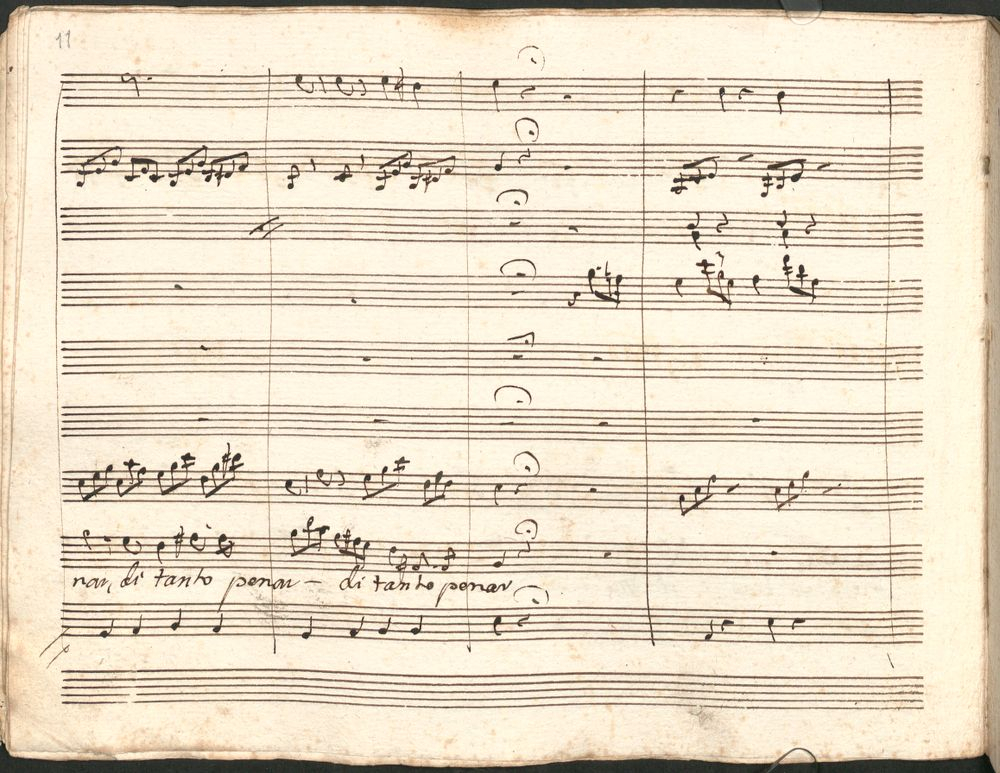 11
nar, di tanto penar – di tanto penar –